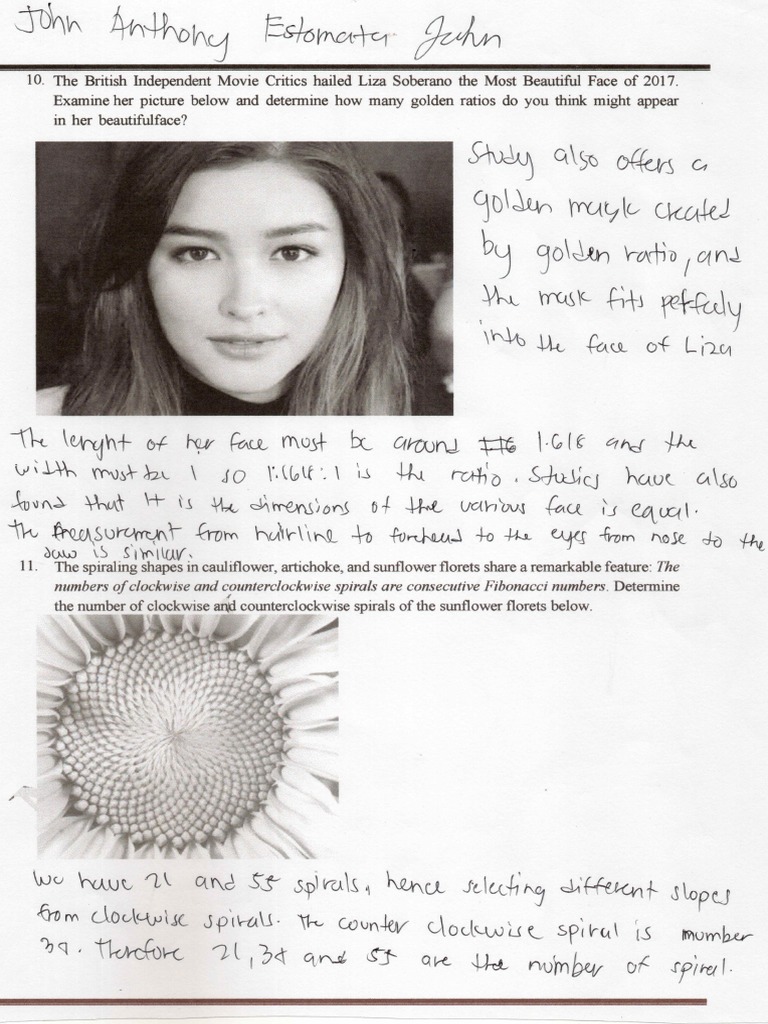 John Anthony Estomata Jahn
10. The British Independent Movie Critics hailed Liza Soberano the Most Beautiful Face of 2017.
Examine her picture below and determine how many golden ratios do you think might appear
in her beautifulface?
Study also offers a
golden mask created
by golden ratio, and
the mask fits petfectly
into the face of Liza
The lenght of her face must be around 1.618 and the
width must be 1 so 1:1618:1 is the ratio. Studies have also
found that It is the dimensions of the various face is equal.
The measurement from hairline to forehead to the eyes from nose to the
Jaw is similar.
11. The spiraling shapes in cauliflower, artichoke, and sunflower florets share a remarkable feature: The
numbers of clockwise and counterclockwise spirals are consecutive Fibonacci numbers. Determine
the number of clockwise and counterclockwise spirals of the sunflower florets below.
We have 21 and 55 spirals, hence selecting different slopes
from clockwise spirals. The counter clockwise spiral is number
34. Therefore 21, 34 and 55 are the number of spiral.